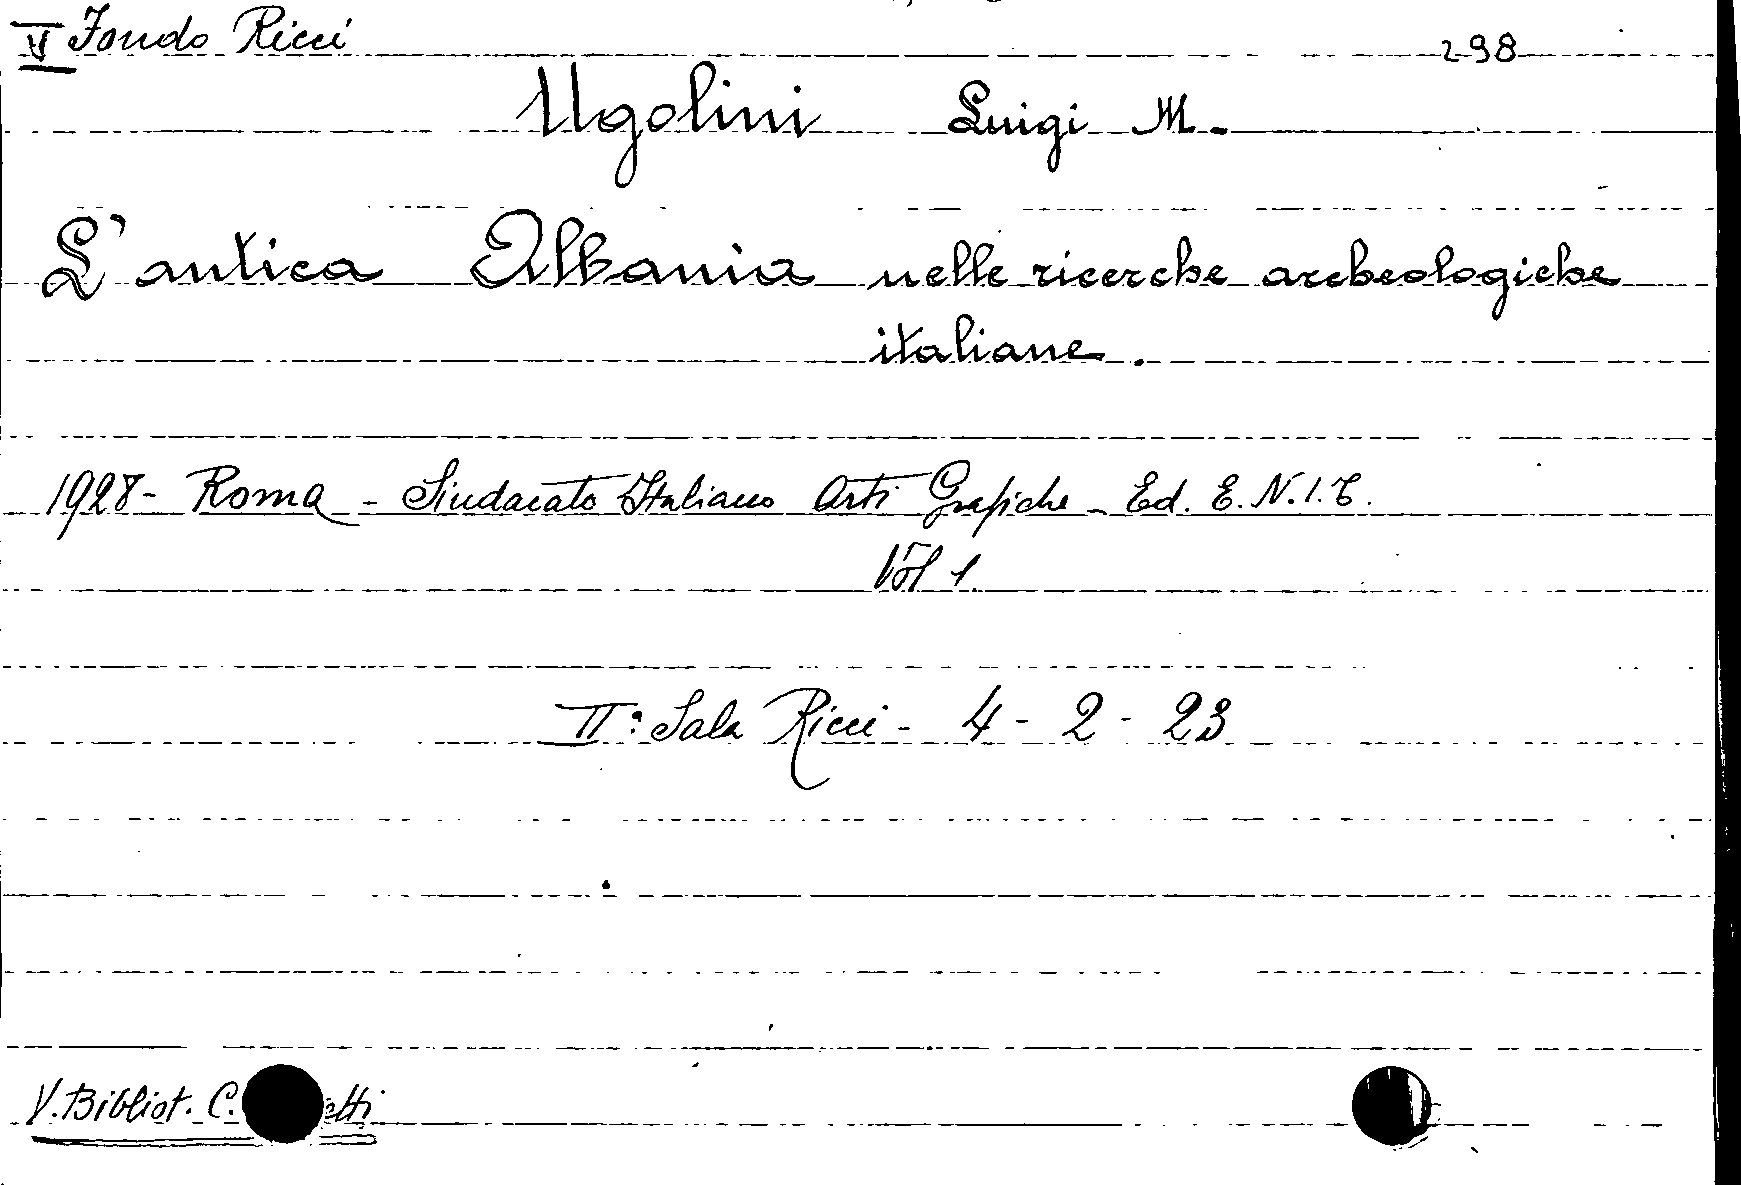 V Fondo Ricci 298
Ugolini Luigi M.
L'antica Albania nelle ricerche archeologiche
italiane.
1928 - Roma - Sindacato Italiano Arti Grafiche - Ed. E.N.I.T.
Vol 1
II: Sala Ricci - 4 - 2 - 23
V. Bibliot. C.